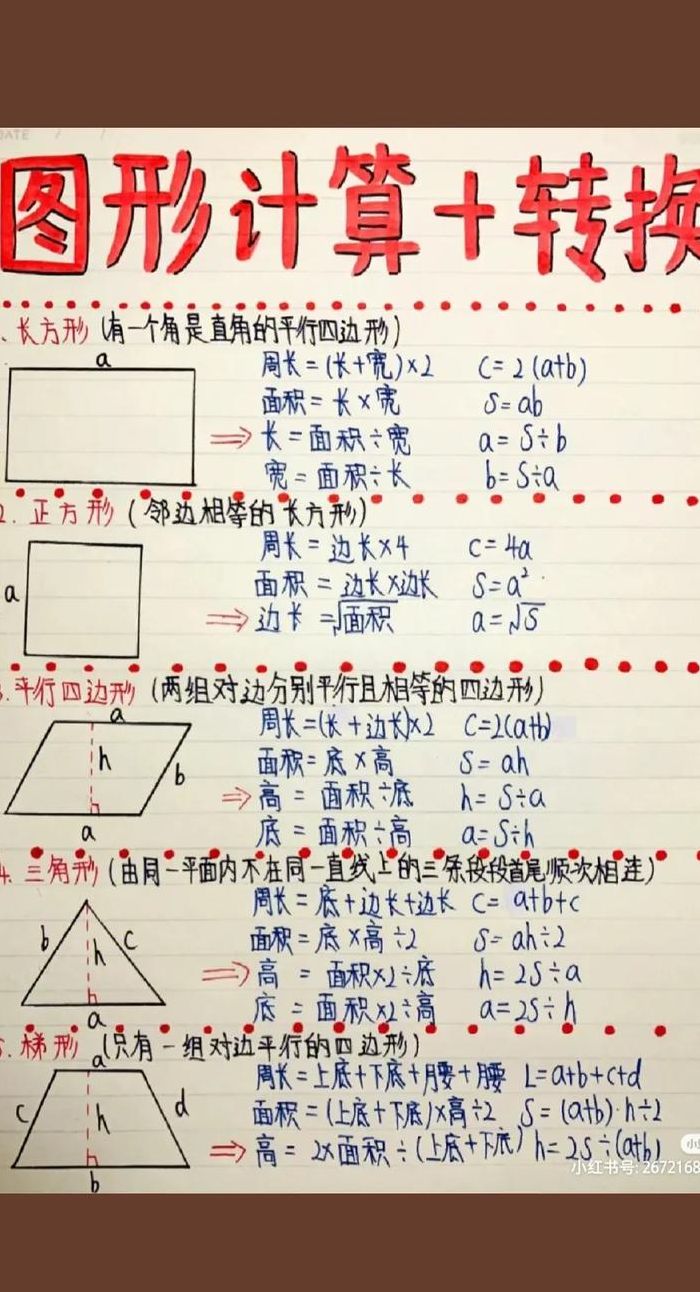 DATE / /
图形计算+转换
、长方形(有一个角是直角的平行四边形)
a
周长=(长+宽)×2 C=2(a+b)
面积=长×宽 S=ab
⇒长=面积÷宽 a=S÷b
宽=面积÷长 b=S÷a
2.正方形(邻边相等的长方形)
周长=边长×4 C=4a
a
面积=边长×边长 S=a²
⇒边长=√面积 a=√S
3.平行四边形(两组对边分别平行且相等的四边形)
a
周长=(长+边长)×2 C=2(a+b)
h
b
面积=底×高 S=ah
⇒高=面积÷底 h=S÷a
a
底=面积÷高 a=S÷h
4.三角形(由同一平面内不在同一直线上的三条段段首尾顺次相连)
周长=底+边长+边长 C=a+b+c
b
h
c
面积=底×高÷2 S=ah÷2
⇒高=面积×2÷底 h=2S÷a
a
底=面积×2÷高 a=2S÷h
5.梯形(只有一组对边平行的四边形)
a
周长=上底+下底+腰+腰 L=a+b+c+d
c
h
d
面积=(上底+下底)×高÷2 S=(a+b)·h÷2
⇒高=2×面积÷(上底+下底) h=2S÷(a+b)
b
小红书号:2672168